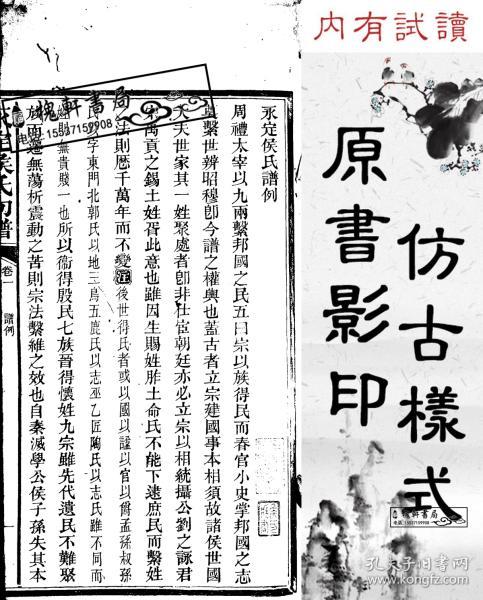 內有試讀
原書影印
仿古樣式
槐軒書局
電話:15537159908
永定侯氏譜例
周禮太宰以九兩繫邦國之民五曰宗以族得民而春官小史掌邦國之志
繫世辨昭穆卽今譜之權輿也蓋古者立宗建國事本相須故諸侯世國
大夫世家其一姓聚處者卽非仕宦朝廷亦必立宗以相統攝公劉之詠君
宗禹貢之錫土姓胥此意也雖因生賜姓胙土命氏不能下逮庶民而繫姓
之法則歷千萬年而不變注後世得氏者或以國以諡以官以爵孟孫叔孫
氏以字東門北郭氏以地三烏五鹿氏以志巫乙匠陶氏以志氏雖不同而
無貴賤一也所以衞得殷民七族晉得懷姓九宗雖先代遺民不難聚
族而還無蕩析震動之苦則宗法繫維之效也自秦滅學公侯子孫失其本
侯氏初譜
卷一
譜例
一
槐軒書局
電話:15537159908
孔夫子旧书网
www.kongfz.com